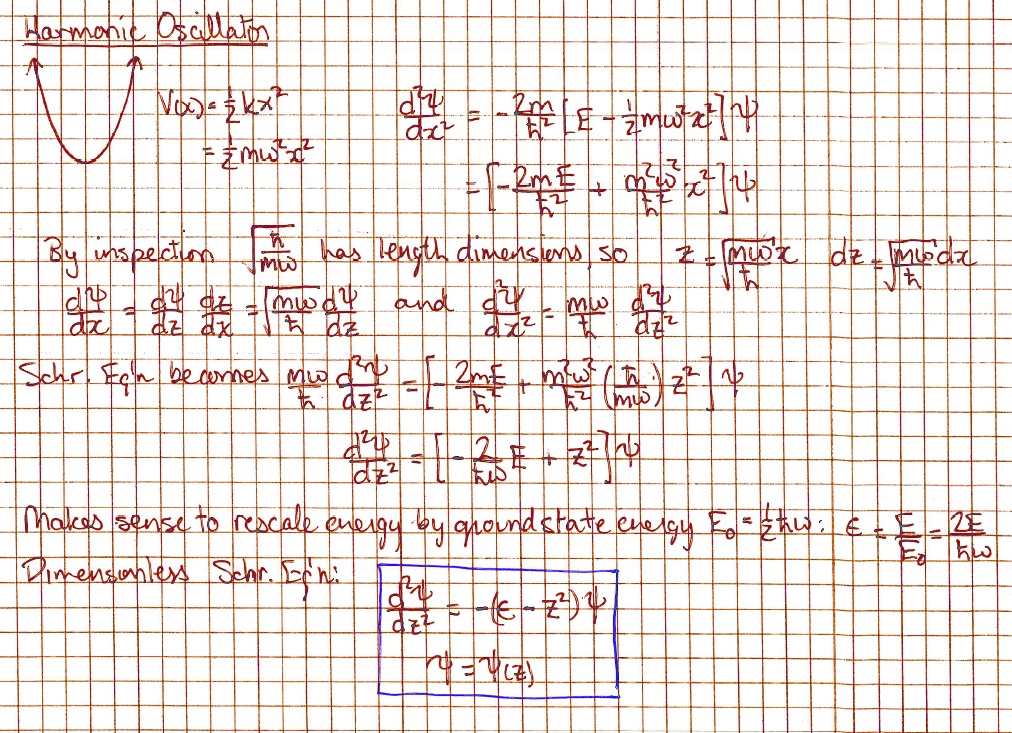 Harmonic Oscillator
V(x) = ½kx²
= ½mω²x²
d²ψ/dx² = -2m/ħ² [E - ½mω²x²]ψ
= [-2mE/ħ² + m²ω²/ħ² x²]ψ
By inspection √(ħ/mω) has length dimensions, so z = √(mω/ħ) x dz = √(mω/ħ) dx
dψ/dx = dψ/dz dz/dx = √(mω/ħ) dψ/dz and d²ψ/dx² = mω/ħ d²ψ/dz²
Schr. Eq'n becomes mω/ħ d²ψ/dz² = [-2mE/ħ² + m²ω²/ħ² (ħ/mω) z²]ψ
d²ψ/dz² = [-2/ħω E + z²]ψ
Makes sense to rescale energy by ground state energy E₀ = ½ħω: ϵ = E/E₀ = 2E/ħω
Dimensionless Schr. Eq'n:
d²ψ/dz² = -(ϵ - z²)ψ
ψ = ψ(z)